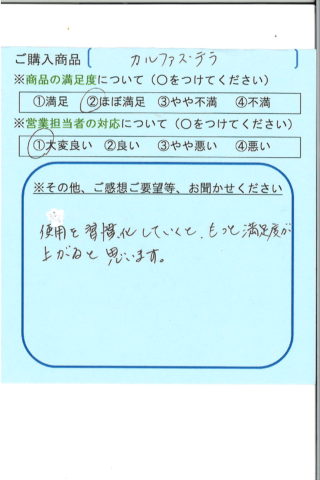 ご購入商品 カルファス・テラ
※商品の満足度について（○をつけてください）
①満足 ②ほぼ満足 ③やや不満 ④不満
※営業担当者の対応について（○をつけてください）
①大変良い ②良い ③やや悪い ④悪い
※その他、ご感想ご要望等、お聞かせください
使用を習慣化していくと、もっと満足度が
上がると思います。